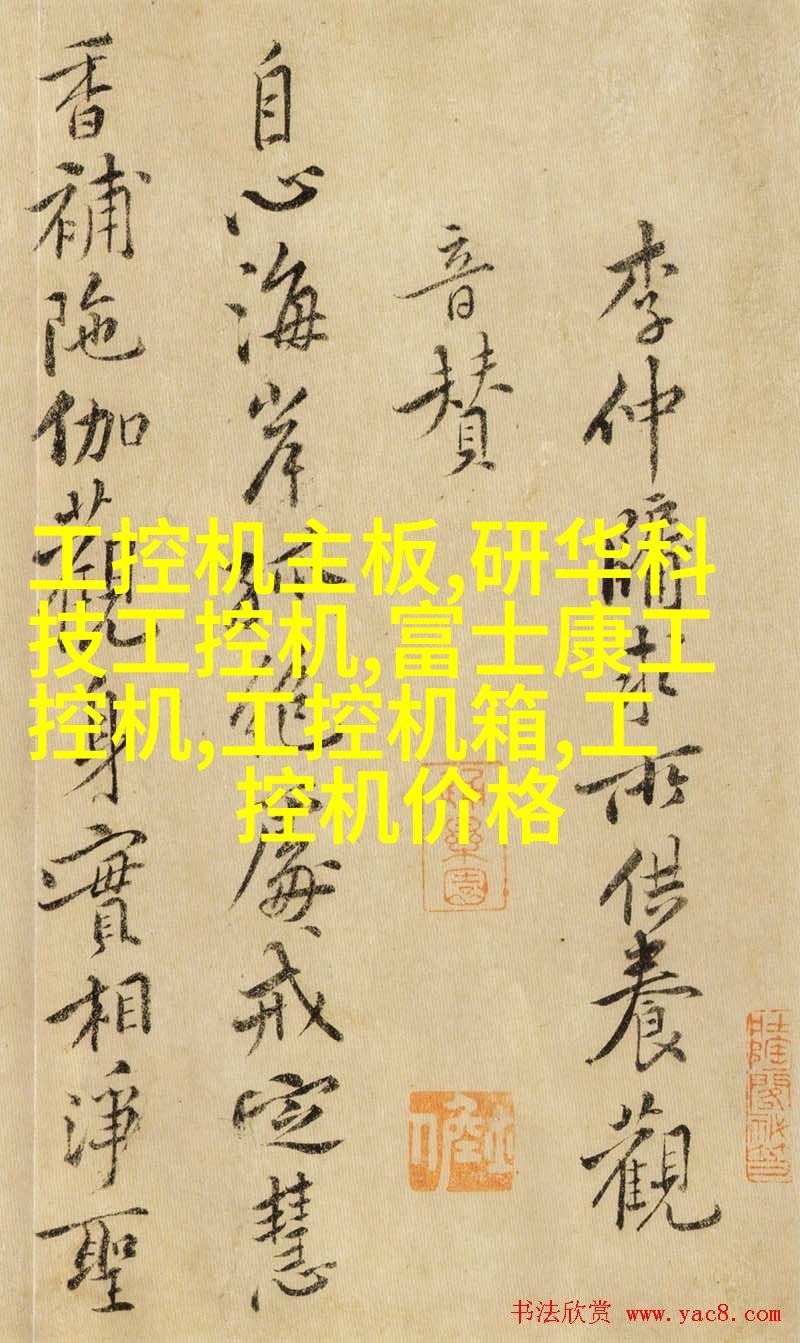 李仲求所供養觀
音賛
自心海岸孤絕處戒定慧
香補陁伽觀身實相淨聖
工控机主板,研华科
技工控机,富士康工
控机,工控机箱,工
控机价格
书法欣赏 www.yac8.com